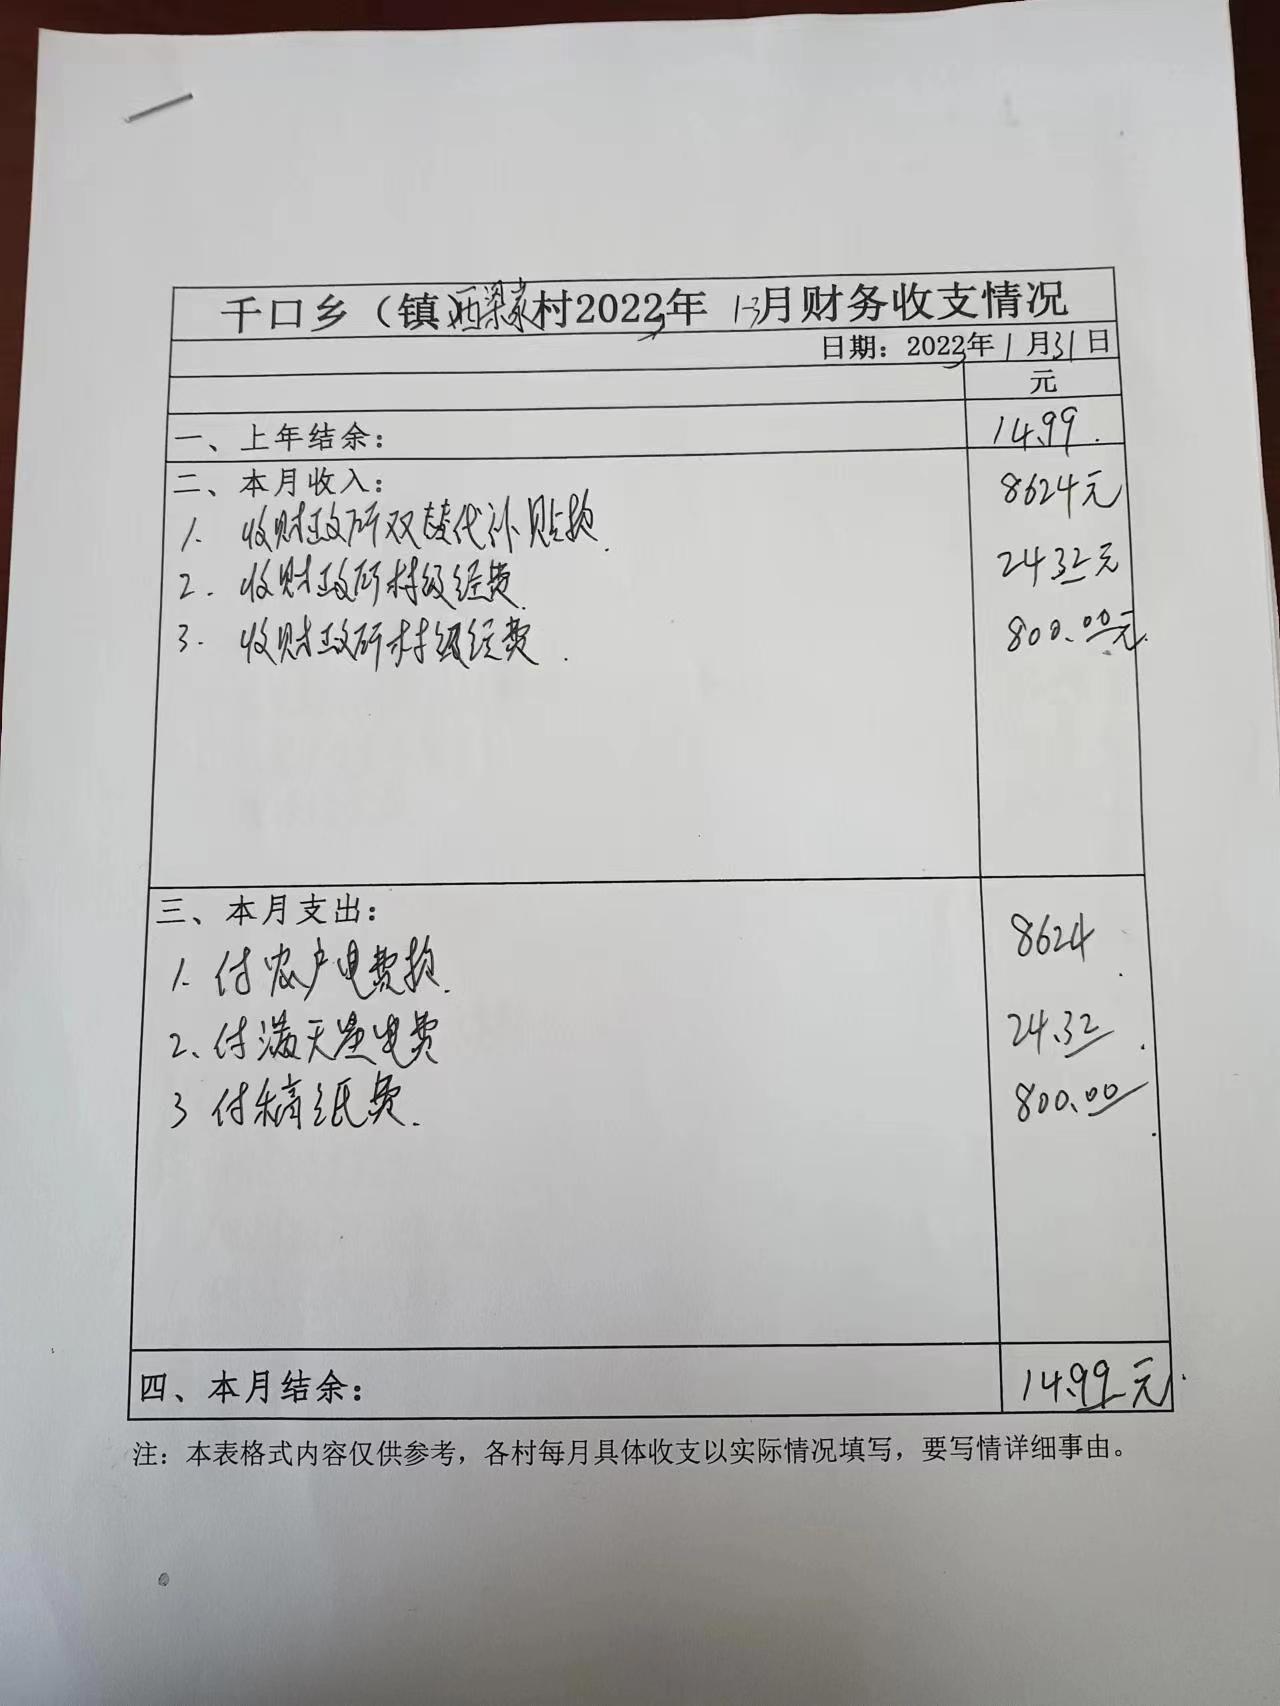 千口乡（镇）西梁家村2023年 1-3月财务收支情况
日期：2023年1月31日
元
一、上年结余： 14.99.
二、本月收入：
1. 收财政所双替代补贴款. 8624元
2. 收财政所村级经费. 24.32元
3. 收财政所村级经费. 800.00元.
三、本月支出：
1. 付农户电费款. 8624.
2、付满天星电费 24.32.
3 付稿纸费. 800.00.
四、本月结余： 14.99元.
注：本表格式内容仅供参考，各村每月具体收支以实际情况填写，要写情详细事由。